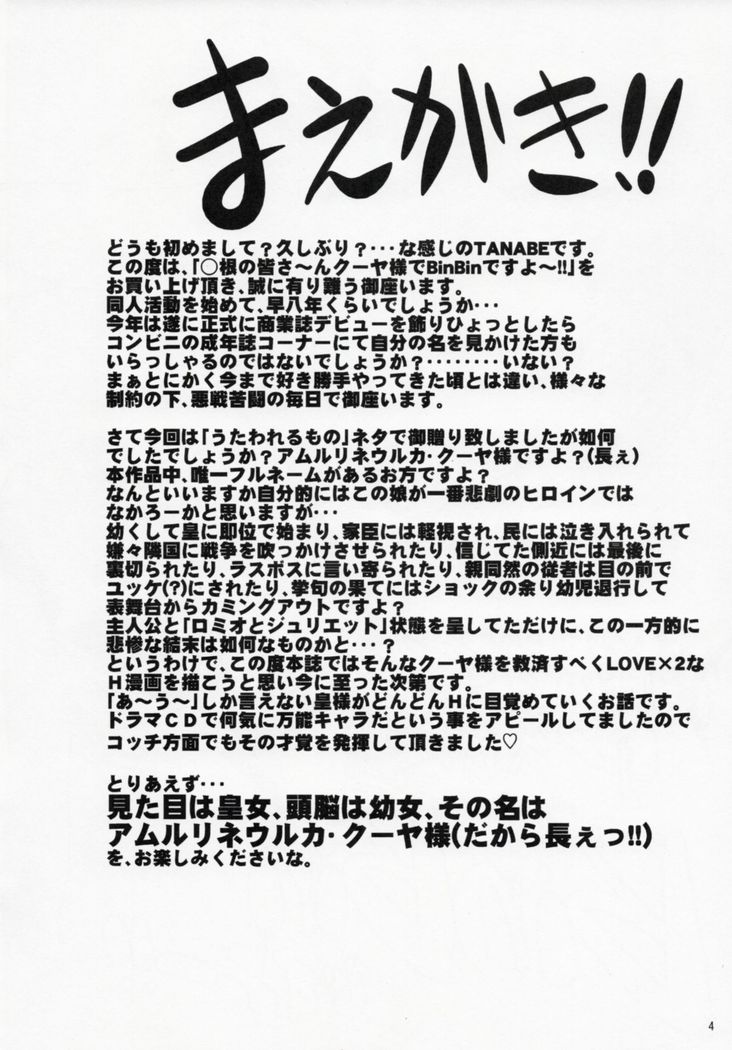 まえがき!!
どうも初めまして？久しぶり？･･･な感じのTANABEです。
この度は、「○根の皆さ～んクーヤ様でBinBinですよ～!!」を
お買い上げ頂き、誠に有り難う御座います。
同人活動を始めて、早八年くらいでしょうか･･･
今年は遂に正式に商業誌デビューを飾りひょっとしたら
コンビニの成年誌コーナーにて自分の名を見かけた方も
いらっしゃるのではないでしょうか？････････いない？
まぁとにかく今まで好き勝手やってきた頃とは違い、様々な
制約の下、悪戦苦闘の毎日で御座います。
さて今回は「うたわれるもの」ネタで御贈り致しましたが如何
でしたでしょうか？アムルリネウルカ・クーヤ様ですよ？(長ぇ)
本作品中、唯一フルネームがあるお方ですよ？
なんといいますか自分的にはこの娘が一番悲劇のヒロインでは
なかろーかと思いますが･･･
幼くして皇に即位で始まり、家臣には軽視され、民には泣き入れられて
嫌々隣国に戦争を吹っかけさせられたり、信じてた側近には最後に
裏切られたり、ラスボスに言い寄られたり、親同然の従者は目の前で
ユッケ(?)にされたり、挙句の果てにはショックの余り幼児退行して
表舞台からカミングアウトですよ？
主人公と「ロミオとジュリエット」状態を呈してただけに、この一方的に
悲惨な結末は如何なものかと･･･？
というわけで、この度本誌ではそんなクーヤ様を救済すべくLOVE×2な
Ｈ漫画を描こうと思い今に至った次第です。
「あ～う～」しか言えない皇様がどんどんＨに目覚めていくお話です。
ドラマＣＤで何気に万能キャラだという事をアピールしてましたので
コッチ方面でもその才覚を発揮して頂きました♡
とりあえず･･･
見た目は皇女、頭脳は幼女、その名は
アムルリネウルカ・クーヤ様(だから長ぇっ!!)
を、お楽しみくださいな。
4